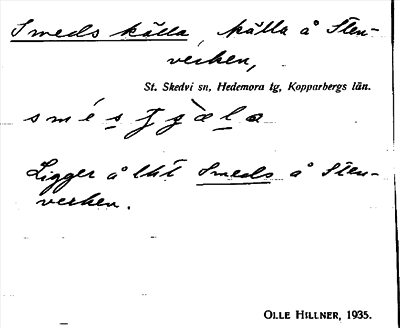 Smeds källa, källa å Sten-
verken,
St. Skedvi sn, Hedemora tg, Kopparbergs län.
Ligger å lht Smeds å Sten-
verken.
OLLE HILLNER, 1935.